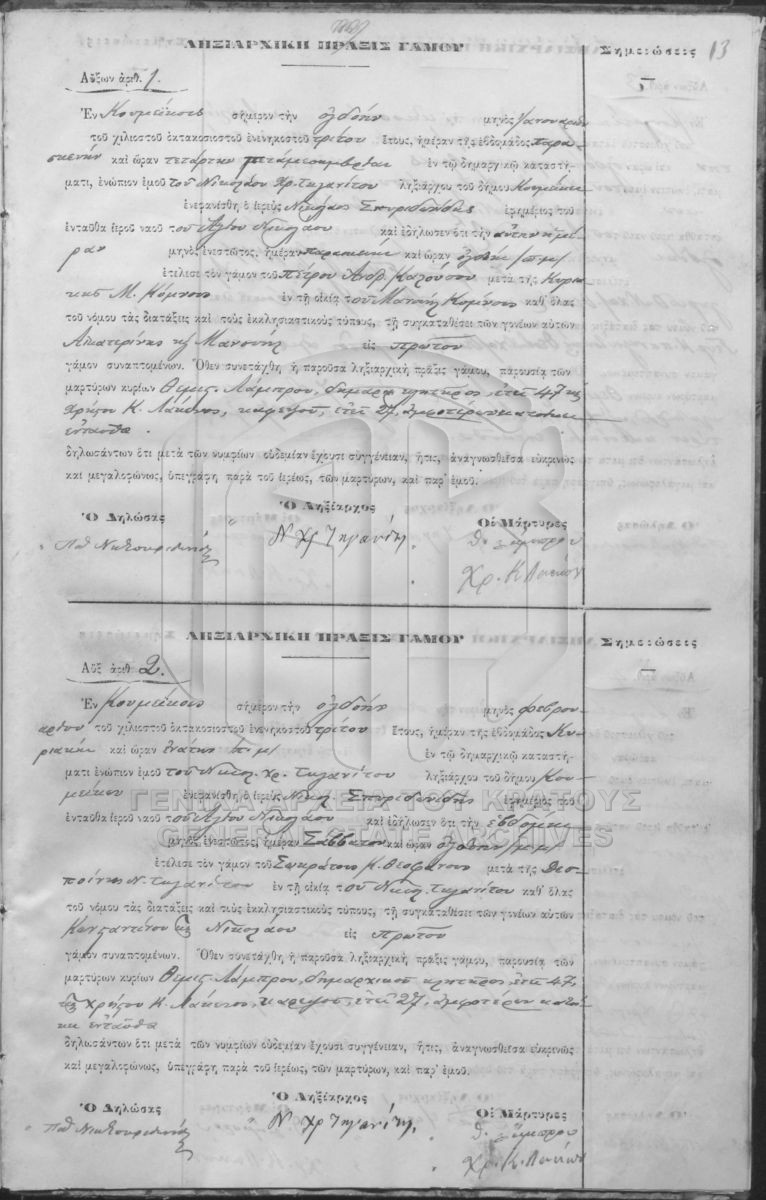 13
ΛΗΞΙΑΡΧΙΚΗ ΠΡΑΞΙΣ ΓΑΜΟΥ
Σημειώσεις
Αὔξων ἀριθ. 1.
Ἐν Κουμεΐκοις σήμερον τὴν ὀγδόην μηνὸς Ἰανουαρίου
τοῦ χιλιοστοῦ ὀκτακοσιοστοῦ ἐνενηκοστοῦ τρίτου ἔτους, ἡμέραν τῆς ἑβδομάδος Παρα-
σκευὴν καὶ ὥραν τετάρτην μετὰ μεσημβρίαν ἐν τῷ δημαρχικῷ καταστή-
ματι, ἐνώπιον ἐμοῦ τοῦ Νικολάου Χρ. Τηγανίτου ληξιάρχου τοῦ δήμου Κουμεΐκων
ἐνεφανίσθη ὁ ἱερεὺς Νικόλαος Σπυριδωνίδης ἐφημέριος τοῦ
ἐνταῦθα ἱεροῦ ναοῦ τοῦ Ἁγίου Νικολάου καὶ ἐδήλωσεν ὅτι τὴν αὐτὴν ἡμέ-
ραν μηνὸς ἐνεστῶτος, ἡμέραν Παρασκευὴν καὶ ὥραν ὀγδόην π.μ.
ἐτέλεσε τὸν γάμον τοῦ Πέτρου Ἀνδρ. Καλούσου μετὰ τῆς Κυρια-
κῆς Μ. Κόμνου ἐν τῇ οἰκίᾳ τοῦ Μανουὴλ Κομνοῦ καθ' ὅλας
τοῦ νόμου τὰς διατάξεις καὶ τοὺς ἐκκλησιαστικοὺς τύπους, τῇ συγκαταθέσει τῶν γονέων αὐτῶν
Αἰκατερίνης κ Μανουὴλ εἰς πρῶτον
γάμον συναπτομένων. Ὅθεν συνετάχθη ἡ παροῦσα ληξιαρχικὴ πρᾶξις γάμου, παρουσίᾳ τῶν
μαρτύρων κυρίων Θεμις. Λάμπρου, δημαρχ. κλητῆρος, ἐτῶν 47 κ
Χρήστου Κ. Λάκιου, καφεπώλου, ἐτῶν 27, ἀμφοτέρων κατοίκων
ἐνταῦθα.
δηλωσάντων ὅτι μετὰ τῶν νυμφίων οὐδεμίαν ἔχουσι συγγένειαν, ἥτις, ἀναγνωσθεῖσα εὐκρινῶς
καὶ μεγαλοφώνως, ὑπεγράφη παρὰ τοῦ ἱερέως, τῶν μαρτύρων, καὶ παρ' ἐμοῦ.
Ὁ Δηλώσας Ὁ Ληξίαρχος Οἱ Μάρτυρες
Ν Χρ Τηγανίτης
Θ. Λάμπρου
ΛΗΞΙΑΡΧΙΚΗ ΠΡΑΞΙΣ ΓΑΜΟΥ
Σημειώσεις
Αὔξ ἀριθ 2.
Ἐν Κουμεΐκοις σήμερον τὴν ὀγδόην μηνὸς Φεβρου-
αρίου τοῦ χιλιοστοῦ ὀκτακοσιοστοῦ ἐνενηκοστοῦ τρίτου ἔτους, ἡμέραν τῆς ἑβδομάδος Κυ-
ριακὴν καὶ ὥραν ἐνάτην π.μ. ἐν τῷ δημαρχικῷ καταστή-
ματι ἐνώπιον ἐμοῦ τοῦ Νικολ. Χρ. Τηγανίτου ληξιάρχου τοῦ δήμου Κου-
μεΐκων ἐνεφανίσθη ὁ ἱερεὺς Νικολ. Σπυριδωνίδης ἐφημέριος τοῦ
ἐνταῦθα ἱεροῦ ναοῦ τοῦ Ἁγίου Νικολάου καὶ ἐδήλωσεν ὅτι τὴν ἑβδόμην
μηνὸς ἐνεστῶτος, ἡμέραν Σάββατον καὶ ὥραν ὀγδόην μ.μ.
ἐτέλεσε τὸν γάμον τοῦ Σωκράτους Κ. Θεοφάνους μετὰ τῆς Δεσ-
ποίνης Ν. Τηγανίτου ἐν τῇ οἰκίᾳ τοῦ Νικολ. Τηγανίτου καθ' ὅλας
τοῦ νόμου τὰς διατάξεις καὶ τοὺς ἐκκλησιαστικοὺς τύπους, τῇ συγκαταθέσει τῶν γονέων αὐτῶν
Κωνσταντίνου κ Νικολάου εἰς πρῶτον
γάμον συναπτομένων. Ὅθεν συνετάχθη ἡ παροῦσα ληξιαρχικὴ πρᾶξις γάμου, παρουσίᾳ τῶν
μαρτύρων κυρίων Θεμις. Λάμπρου, δημαρχικοῦ κλητῆρος, ἐτῶν 47,
κ Χρήστου Κ. Λάκιου, καφεπώλου, ἐτῶν 27, ἀμφοτέρων κατοί-
κων ἐνταῦθα
δηλωσάντων ὅτι μετὰ τῶν νυμφίων οὐδεμίαν ἔχουσι συγγένειαν, ἥτις, ἀναγνωσθεῖσα εὐκρινῶς
καὶ μεγαλοφώνως, ὑπεγράφη παρὰ τοῦ ἱερέως, τῶν μαρτύρων, καὶ παρ' ἐμοῦ.
Ὁ Δηλώσας Ὁ Ληξίαρχος Οἱ Μάρτυρες
Ν Χρ Τηγανίτης
Θ. Λάμπρου
ΓΕΝΙΚΑ ΑΡΧΕΙΑ ΤΟΥ ΚΡΑΤΟΥΣ
GENERAL STATE ARCHIVES